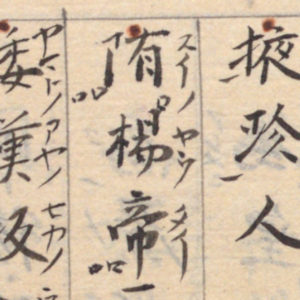 掖珍人
隋楊帝
スイノヤウタイー
倭漢坂
ヤマトノアヤノセカノ